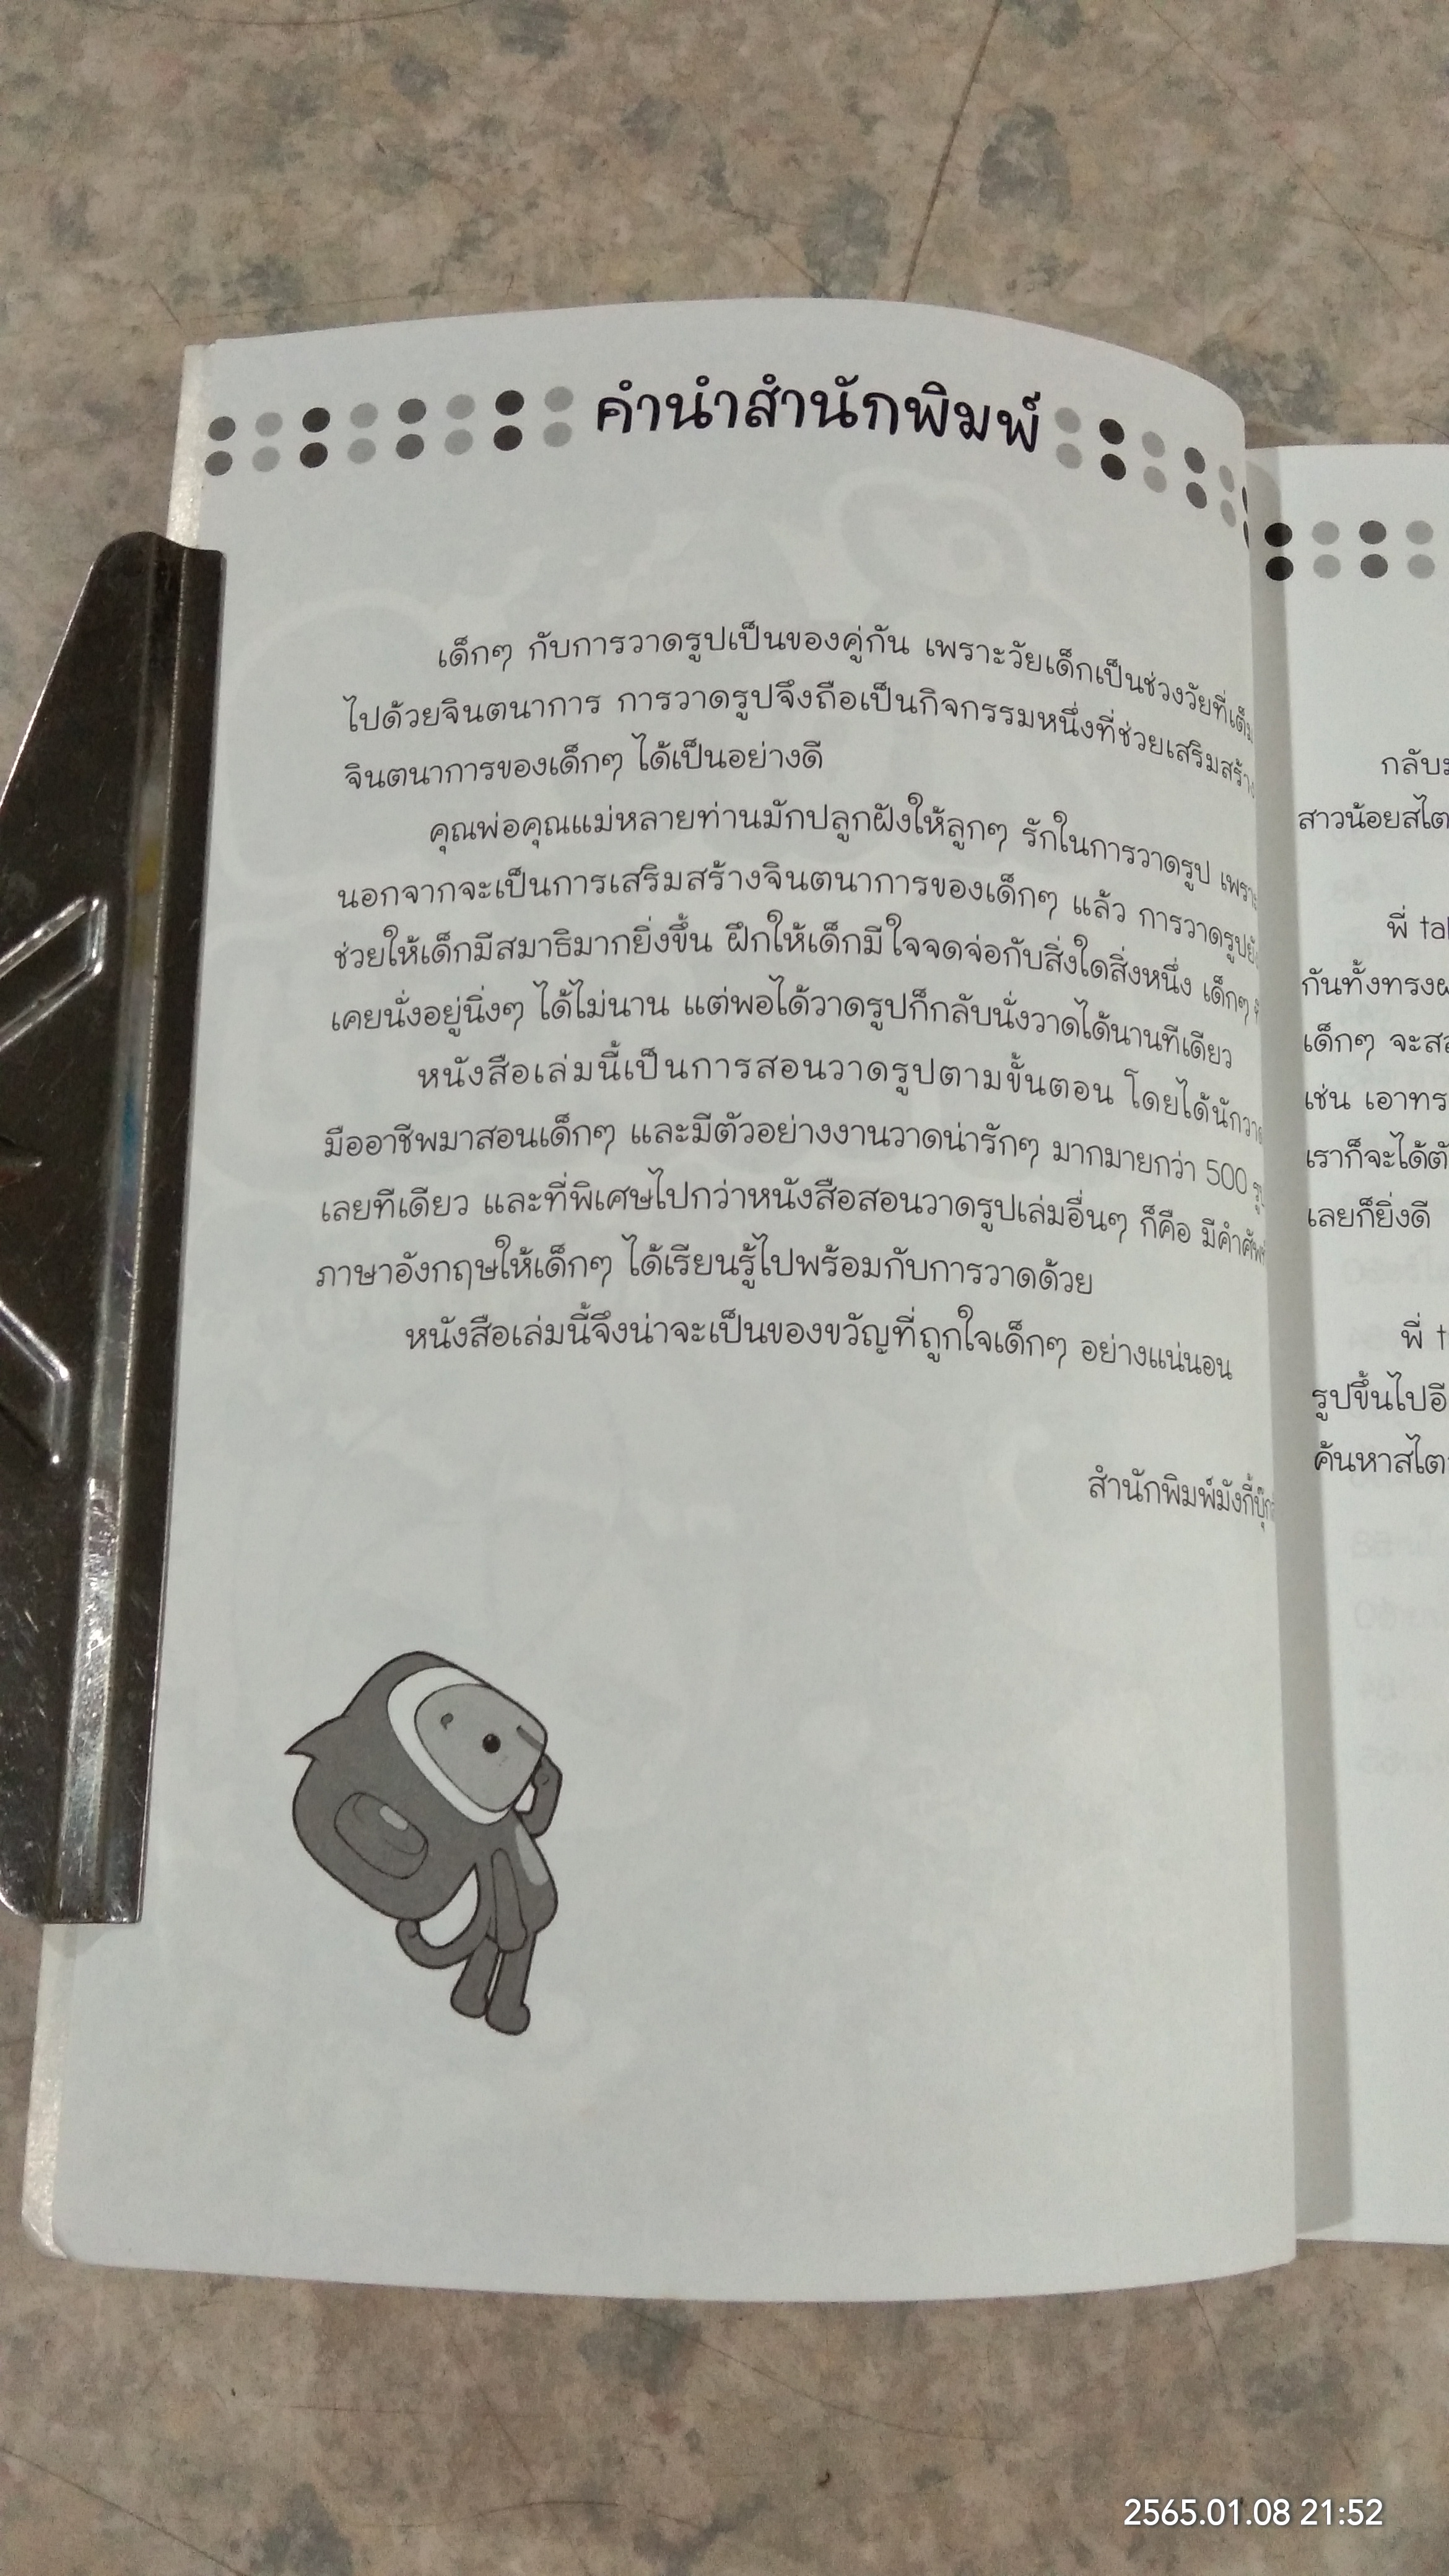 คำนำสำนักพิมพ์
เด็กๆ กับการวาดรูปเป็นของคู่กัน เพราะวัยเด็กเป็นช่วงวัยที่เต็ม
ไปด้วยจินตนาการ การวาดรูปจึงถือเป็นกิจกรรมหนึ่งที่ช่วยเสริมสร้าง
จินตนาการของเด็กๆ ได้เป็นอย่างดี
คุณพ่อคุณแม่หลายท่านมักปลูกฝังให้ลูกๆ รักในการวาดรูป เพราะ
นอกจากจะเป็นการเสริมสร้างจินตนาการของเด็กๆ แล้ว การวาดรูปยัง
ช่วยให้เด็กมีสมาธิมากยิ่งขึ้น ฝึกให้เด็กมีใจจดจ่อกับสิ่งใดสิ่งหนึ่ง เด็กๆ
เคยนั่งอยู่นิ่งๆ ได้ไม่นาน แต่พอได้วาดรูปก็กลับนั่งวาดได้นานทีเดียว
หนังสือเล่มนี้เป็นการสอนวาดรูปตามขั้นตอน โดยได้นักวาด
มืออาชีพมาสอนเด็กๆ และมีตัวอย่างงานวาดน่ารักๆ มากมายกว่า 500 รูป
เลยทีเดียว และที่พิเศษไปกว่าหนังสือสอนวาดรูปเล่มอื่นๆ ก็คือ มีคำศัพท์
ภาษาอังกฤษให้เด็กๆ ได้เรียนรู้ไปพร้อมกับการวาดด้วย
หนังสือเล่มนี้จึงน่าจะเป็นของขวัญที่ถูกใจเด็กๆ อย่างแน่นอน
สำนักพิมพ์มังกี้บุ๊ก
กลับ
สาวน้อยสไต
พี่ ta
กันทั้งทรงผ
เด็กๆ จะส
เช่น เอาทร
เราก็จะได้ตั
เลยก็ยิ่งดี
พี่ t
รูปขึ้นไปอี
ค้นหาสไต
2565.01.08 21:52